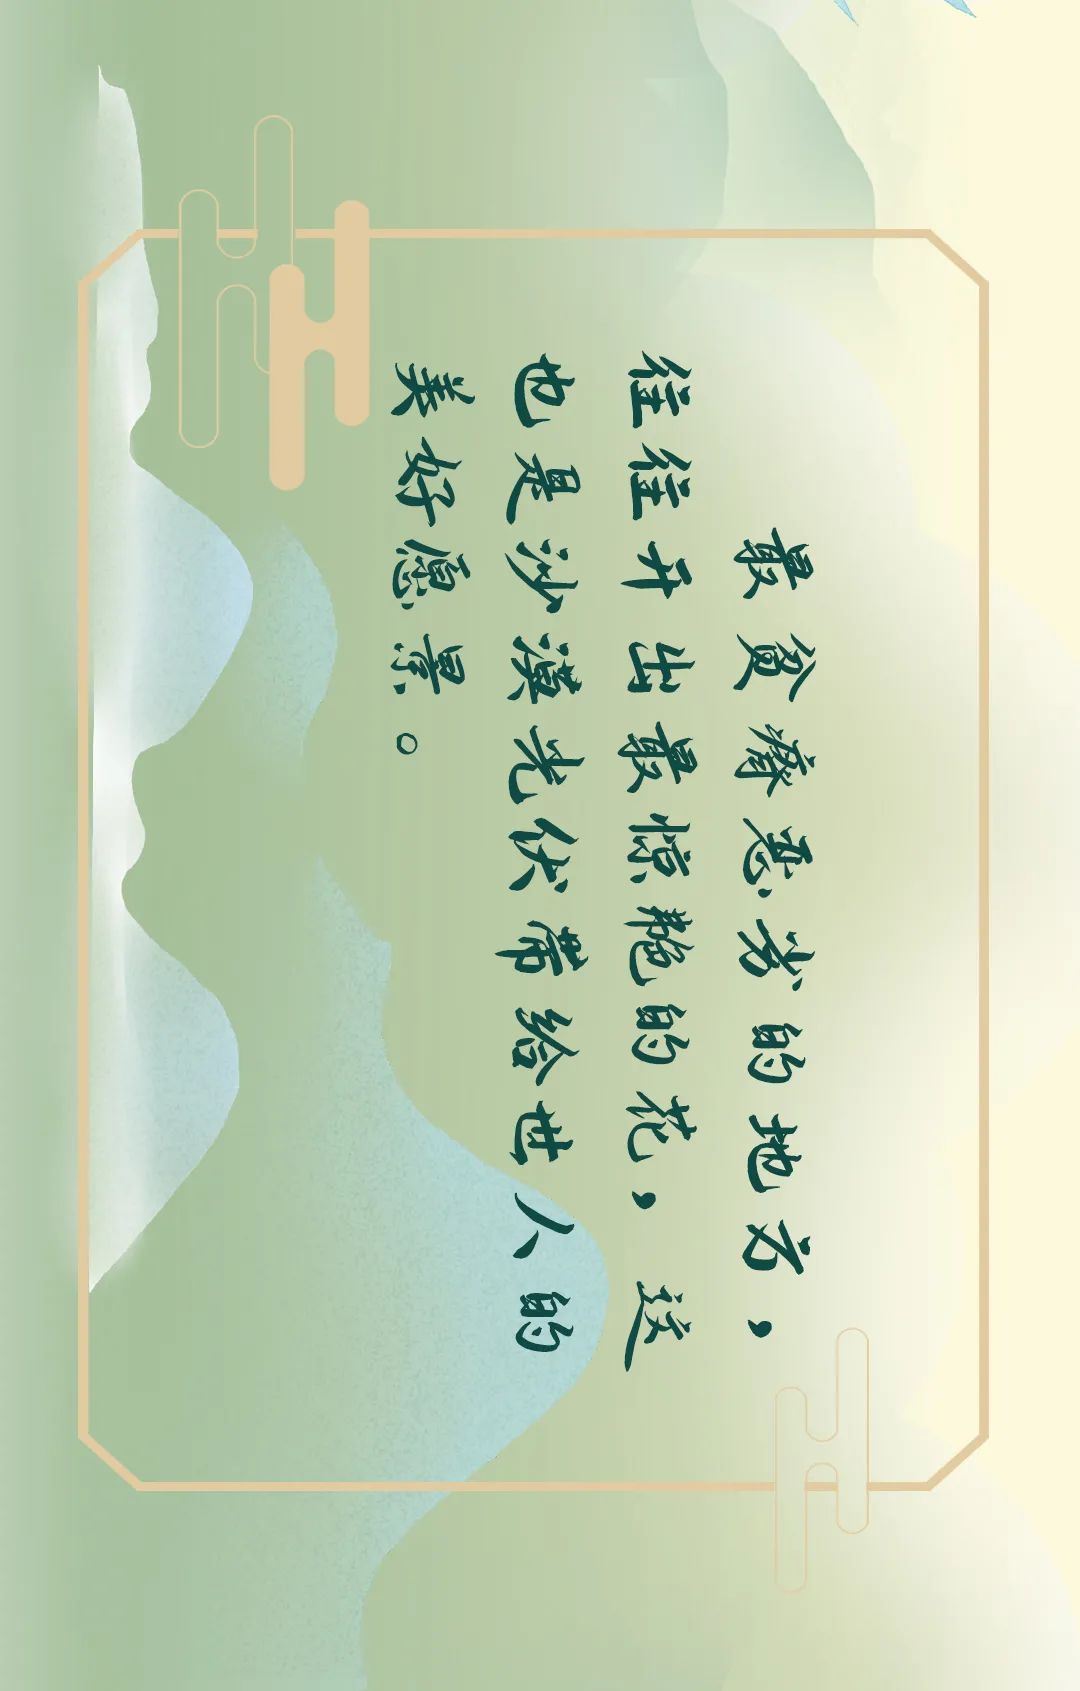 最贫瘠恶劣的地方，
往往开出最惊艳的花，这
也是沙漠光伏带给世人的
美好愿景。